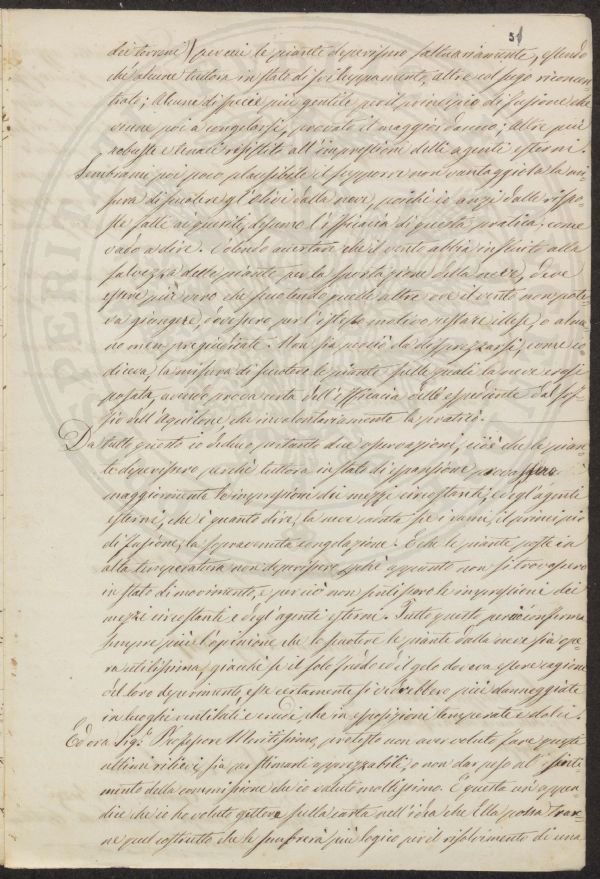 51
dei terreni) per cui le piante deperissero saltuariamente, essendo
ché alcune tuttora in stato di sviluppamento, altre col sugo riconcen-
trato; alcune di specie più gentile per il principio di fusione che
venne poi a congelarsi, provato il maggior danno; altre più
robuste e tenaci resistito all'impressione delli agenti esterni.
Sembrami poi poco plausibile il supporre non vantaggiosa la mi-
sura di scuotere gl'Olivi dalla neve, poiché io anzi dalle rispo-
ste fatte ai quesiti, desumo l'efficacia di questa pratica, come
vado a dire. Volendo accertare che il vento abbia influito alla
salvezza delle piante per la sportazione della neve, deve
essere più vero che scuotendo quelle altre ove il vento non pote-
va giungere, dovessero per l'istesso motivo restare illese, o alme-
no men pregiudicate. Non sia perciò da disprezzarsi, come io
diceva, la misura di scuotere le piante sulle quali la neve erasi
posata, avendo prova certa dell'efficacia dello espediente dal sof-
fio dell'Aquilone, che involontariamente la praticò.
Da tutto questo io deduco pertanto due osservazioni, cioè che le pian-
te deperissero perché tuttora in stato di espansione
maggiormente le impressioni dei mezzi circostanti, e degl'agenti
esterni, che è quanto dire, la neve caduta fra i rami, il principio
di fusione, la sopravvenuta congelazione. E che le piante poste in
alta temperatura non deperissero, perché appunto non si trovassero
in stato di movimento, e per ciò non sentissero le impressioni dei
mezzi circostanti e degl'agenti esterni. Tutto questo però conferma
sempre più l'opinione che lo scuotere le piante dalla neve sia ope-
ra utilissima, giacché se il solo freddo ed il gelo doveva essere cagione
del loro deperimento, esse certamente si vedrebbero più danneggiate
in luoghi ventilati e crudi, che in esposizioni temperate e dolci.
Ed ora Sig.r Professore Meritissimo, protesto non aver voluto fare questi
ultimi rilievi sia per stimarli apprezzabili, o non dar peso al senti-
mento della commissione che io valuto moltissimo. È questa un appen-
dice che io ho voluto gettare sulla carta nell'idea che Ella possa trar-
ne quel costrutto che le sembrerà più logico per il risolvimento di una